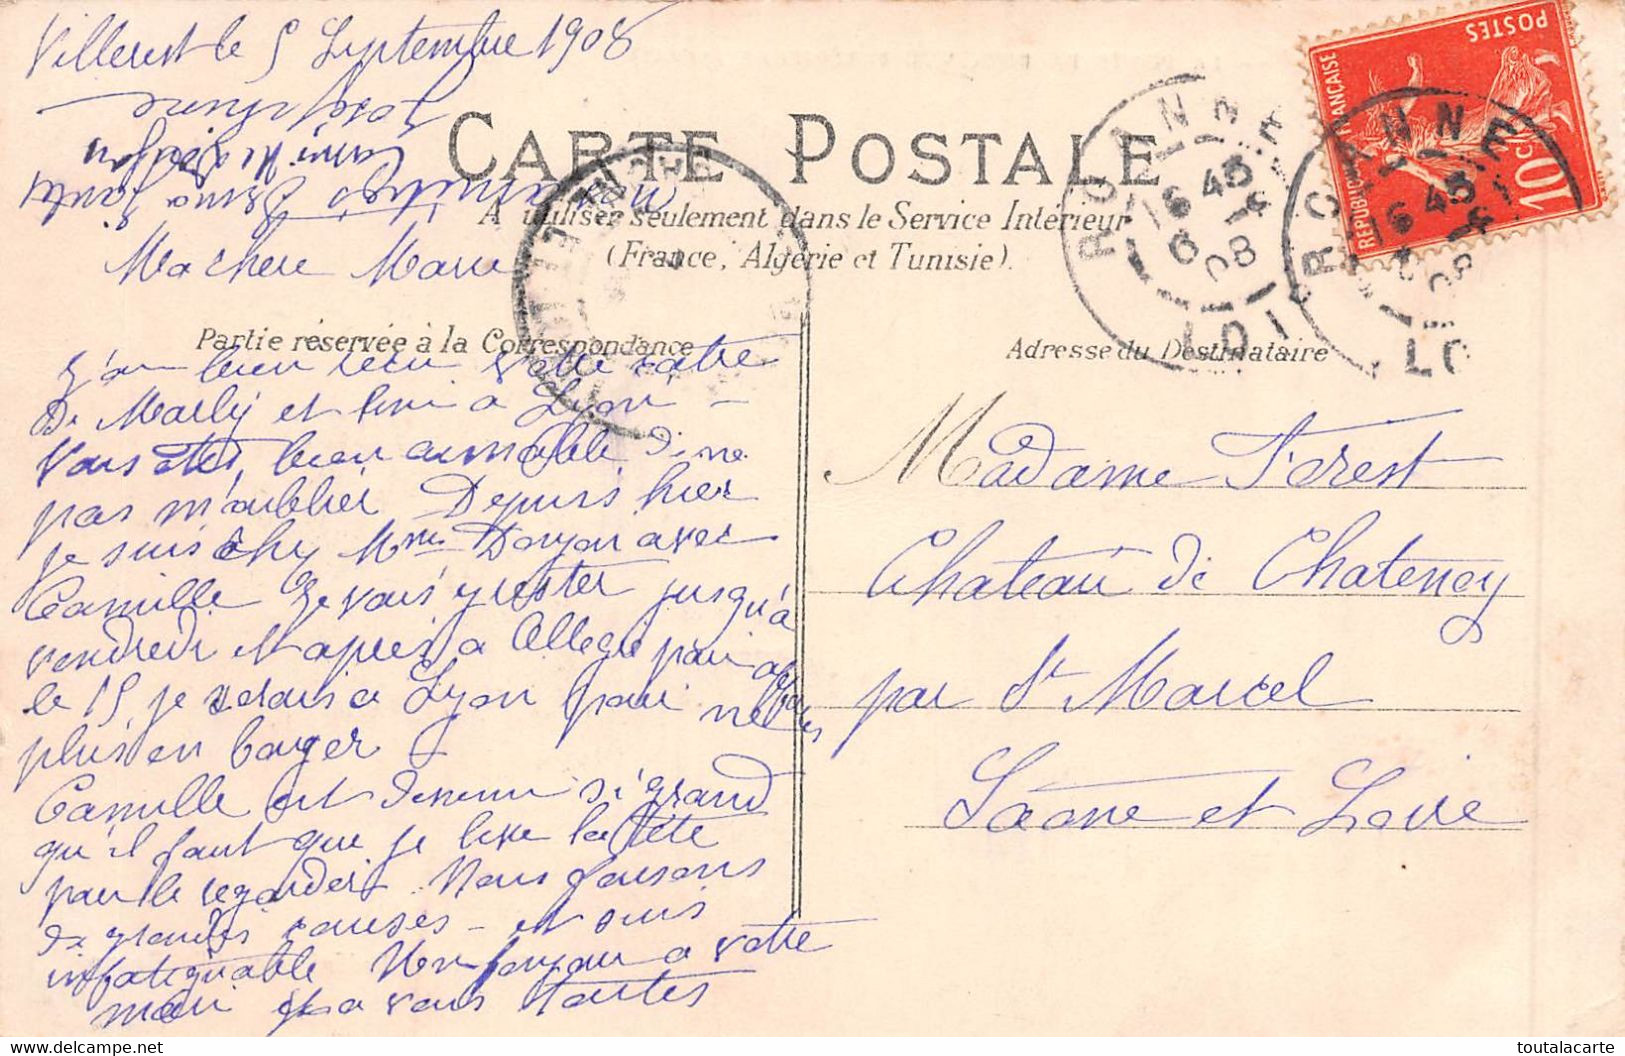 Villerest le 5 Septembre 1908
CARTE POSTALE
A utiliser seulement dans le Service Intérieur
(France, Algérie et Tunisie).
Ma chère Marie
Partie réservée à la Correspondance
J'ai bien reçu votre carte
De Marly et hier à Lyon –
Vous êtes bien aimable de ne
pas m'oublier Depuis hier
je suis chez Mme Donjon avec
Camille Je vais y rester jusqu'à
vendredi et après à
le 15 je serais à Lyon pour ne
plus en bouger
Camille est devenu si grand
qu'il faut que je lève la tête
pour le regarder Nous faisons
de grandes courses – et suis
infatiguable Mon bonjour à votre
mari et a vous toutes
Joséphine
Adresse du Destinataire
Madame Forest
Château de Chatenoy
par St Marcel
Saône et Loire
ROANNE
6 45
6
08
LOIRE
ROANNE
6 45
08
LO
REPUBLIQUE FRANÇAISE
POSTES
10 c
toutalacarte